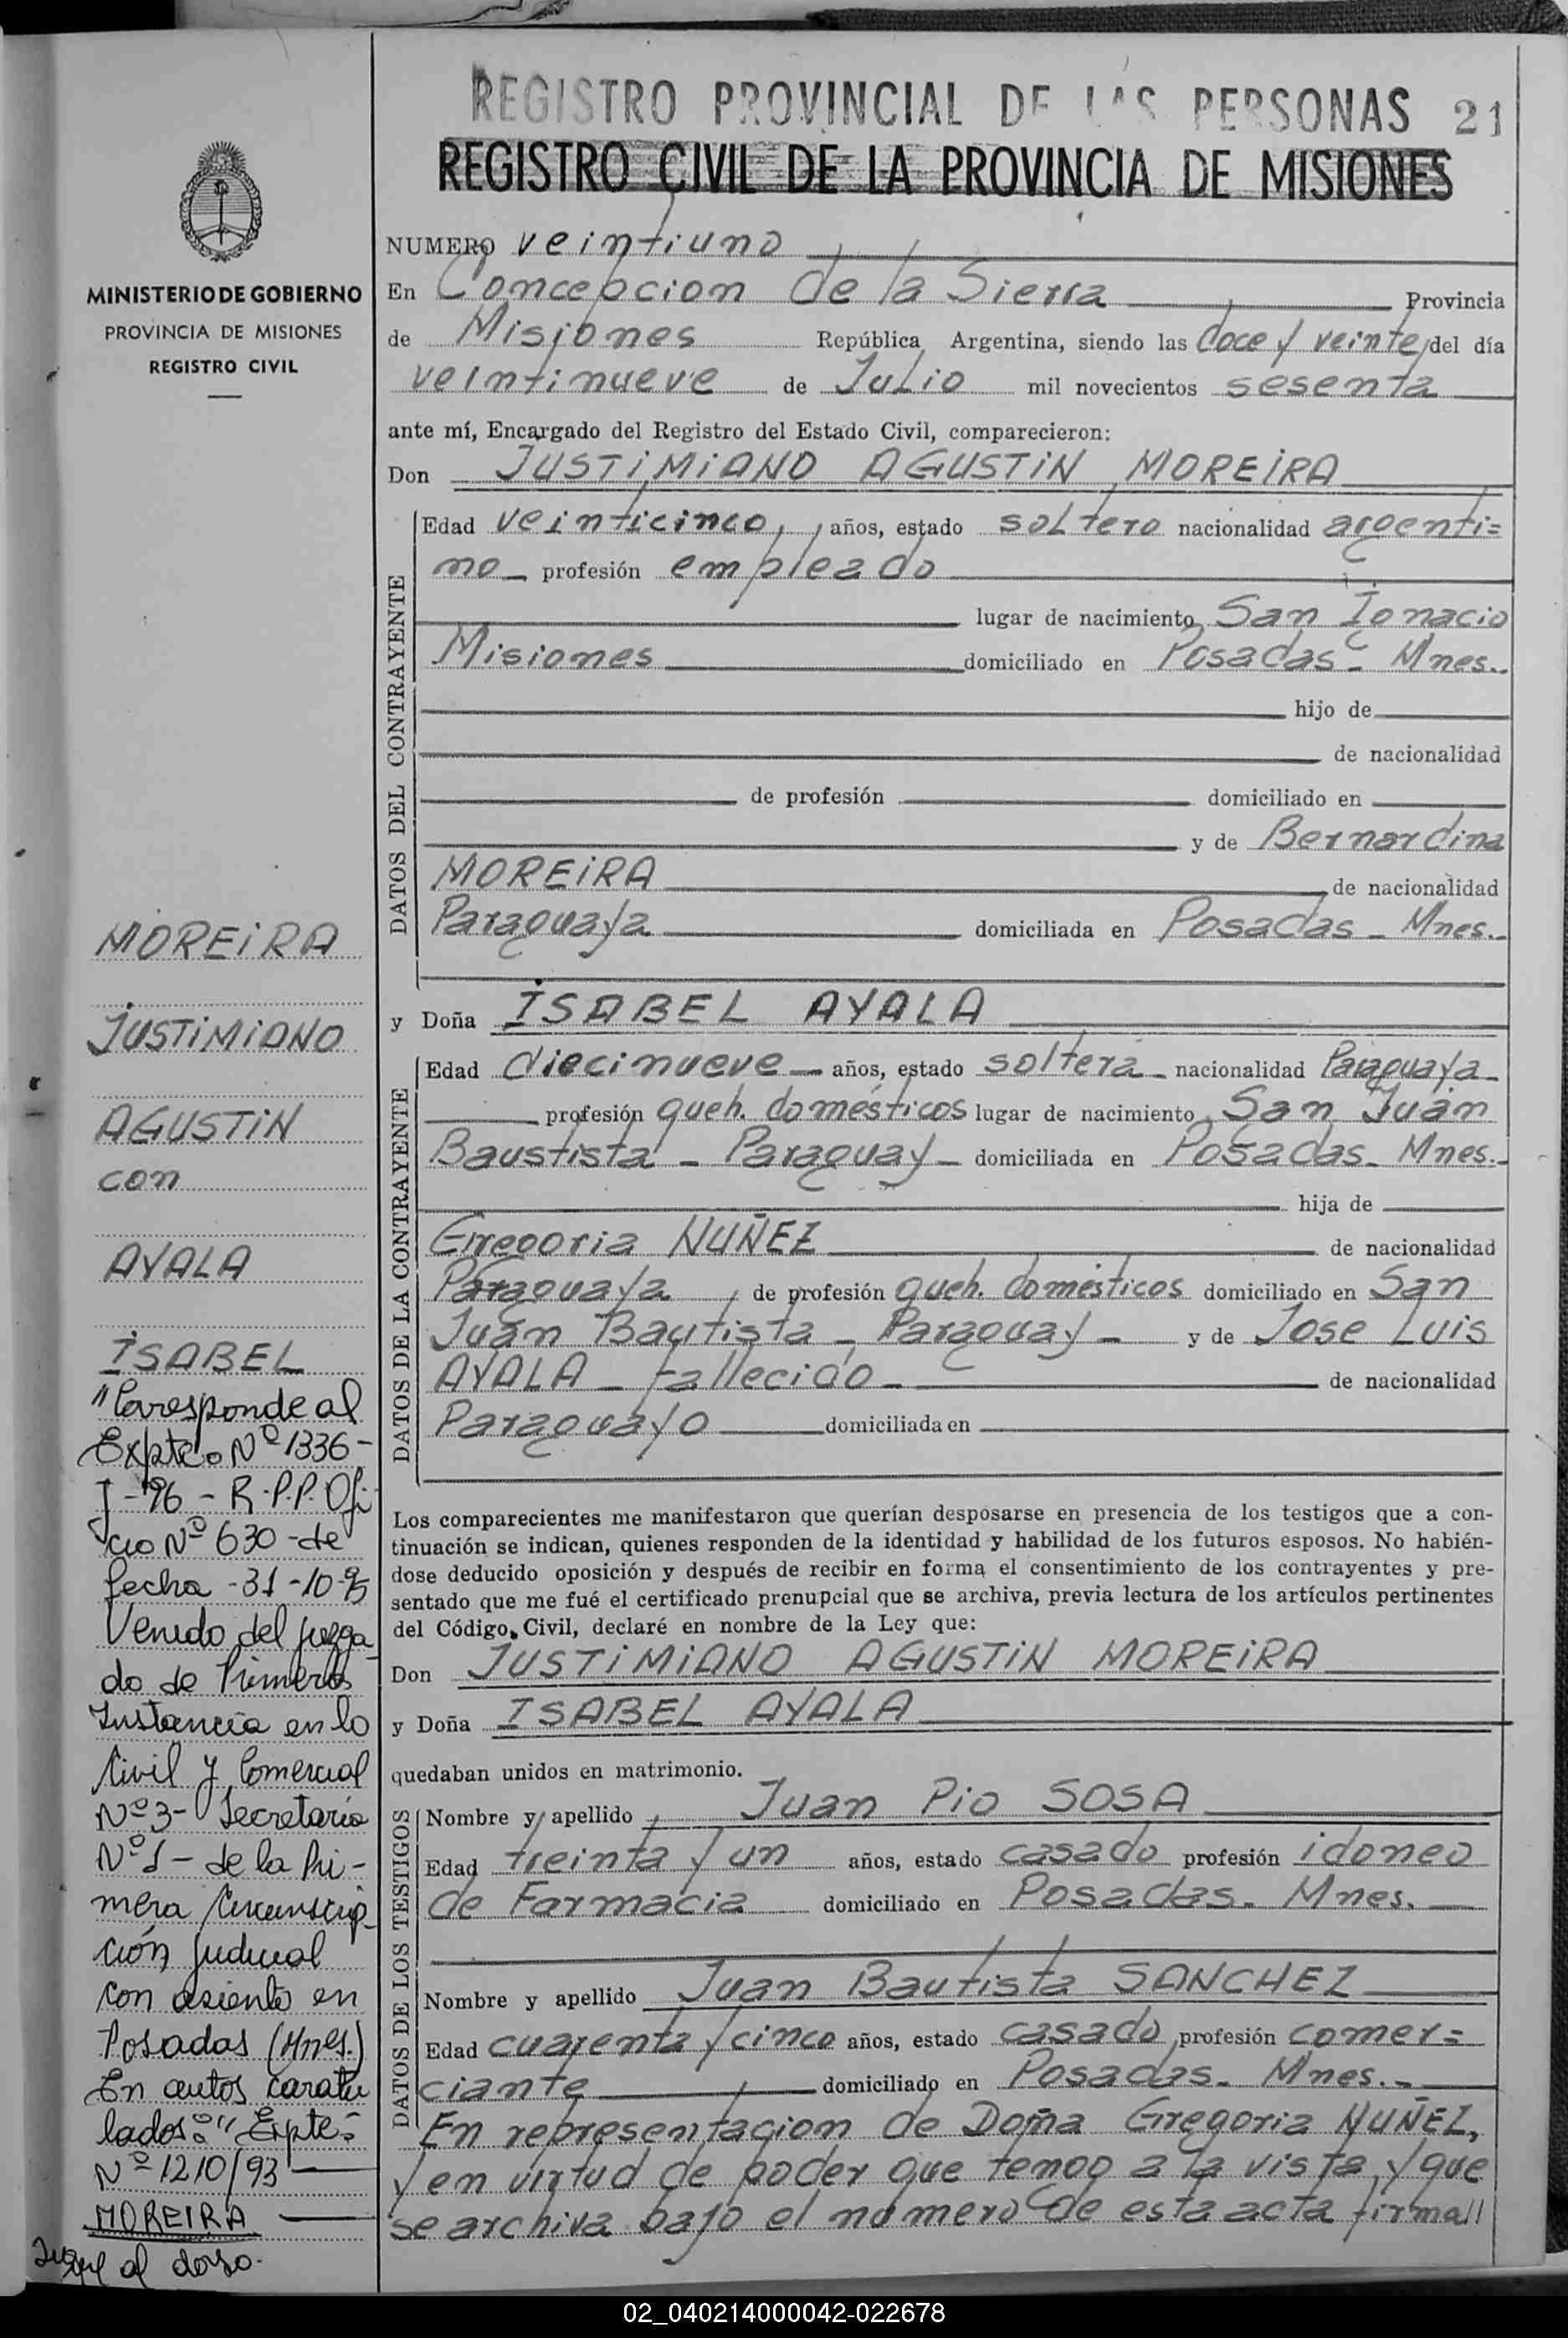 REGISTRO PROVINCIAL DE LAS PERSONAS 21
REGISTRO CIVIL DE LA PROVINCIA DE MISIONES
MINISTERIO DE GOBIERNO
PROVINCIA DE MISIONES
REGISTRO CIVIL
NUMERO veintiuno
En Concepcion de la Sierra Provincia
de Misiones República Argentina, siendo las doce y veinte del día
veintinueve de Julio mil novecientos sesenta
ante mí, Encargado del Registro del Estado Civil, comparecieron:
Don JUSTiMiANO AGUSTiN MOREiRA
DATOS DEL CONTRAYENTE
Edad veinticinco, años, estado soltero nacionalidad argenti=
no profesión empleado
lugar de nacimiento San Ignacio
Misiones domiciliado en Posadas - Mnes.
hijo de
de nacionalidad
de profesión domiciliado en
y de Bernardina
MOREiRA de nacionalidad
Paraguaya domiciliada en Posadas - Mnes.
y Doña ISABEL AYALA
DATOS DE LA CONTRAYENTE
Edad diecinueve años, estado soltera nacionalidad Paraguaya
profesión queh. domésticos lugar de nacimiento San Juan
Baustista - Paraguay - domiciliada en Posadas - Mnes.
hija de
Gregoria NUÑEZ de nacionalidad
Paraguaya de profesión queh. domésticos domiciliado en San
Juan Bautista - Paraguay - y de Jose Luis
AYALA - fallecido - de nacionalidad
Paraguayo domiciliada en
Los comparecientes me manifestaron que querían desposarse en presencia de los testigos que a con-
tinuación se indican, quienes responden de la identidad y habilidad de los futuros esposos. No habién-
dose deducido oposición y después de recibir en forma el consentimiento de los contrayentes y pre-
sentado que me fué el certificado prenupcial que se archiva, previa lectura de los artículos pertinentes
del Código Civil, declaré en nombre de la Ley que:
Don JUSTiMiANO AGUSTiN MOREiRA
y Doña ISABEL AYALA
quedaban unidos en matrimonio.
DATOS DE LOS TESTIGOS
Nombre y apellido Juan Pio SOSA
Edad treinta y un años, estado casado profesión idoneo
de Farmacia domiciliado en Posadas - Mnes.
Nombre y apellido Juan Bautista SANCHEZ
Edad cuarenta y cinco años, estado casado, profesión comer=
ciante domiciliado en Posadas - Mnes.-
En representacion de Doña Gregoria NUÑEZ,
y en virtud de poder que tengo a la vista, y que
se archiva bajo el numero de esta acta firma//
MOREiRA
JUSTiMiANO
AGUSTiN
con
AYALA
ISABEL
"Corresponde al
Expte. Nº 1336-
J-96 - R.P.P. Ofi
cio Nº 630 - de
fecha - 31-10-95
Venido del juzga
do de Primera
Instancia en lo
Civil y Comercial
Nº 3 - Secretaria
Nº 1 - de la Pri-
mera Circunscrip-
ción judicial
con asiento en
Posadas (Mnes.)
En autos caratu
lados: "Expte.
Nº 1210/93
MOREIRA
sigue al dorso.
02_040214000042-022678